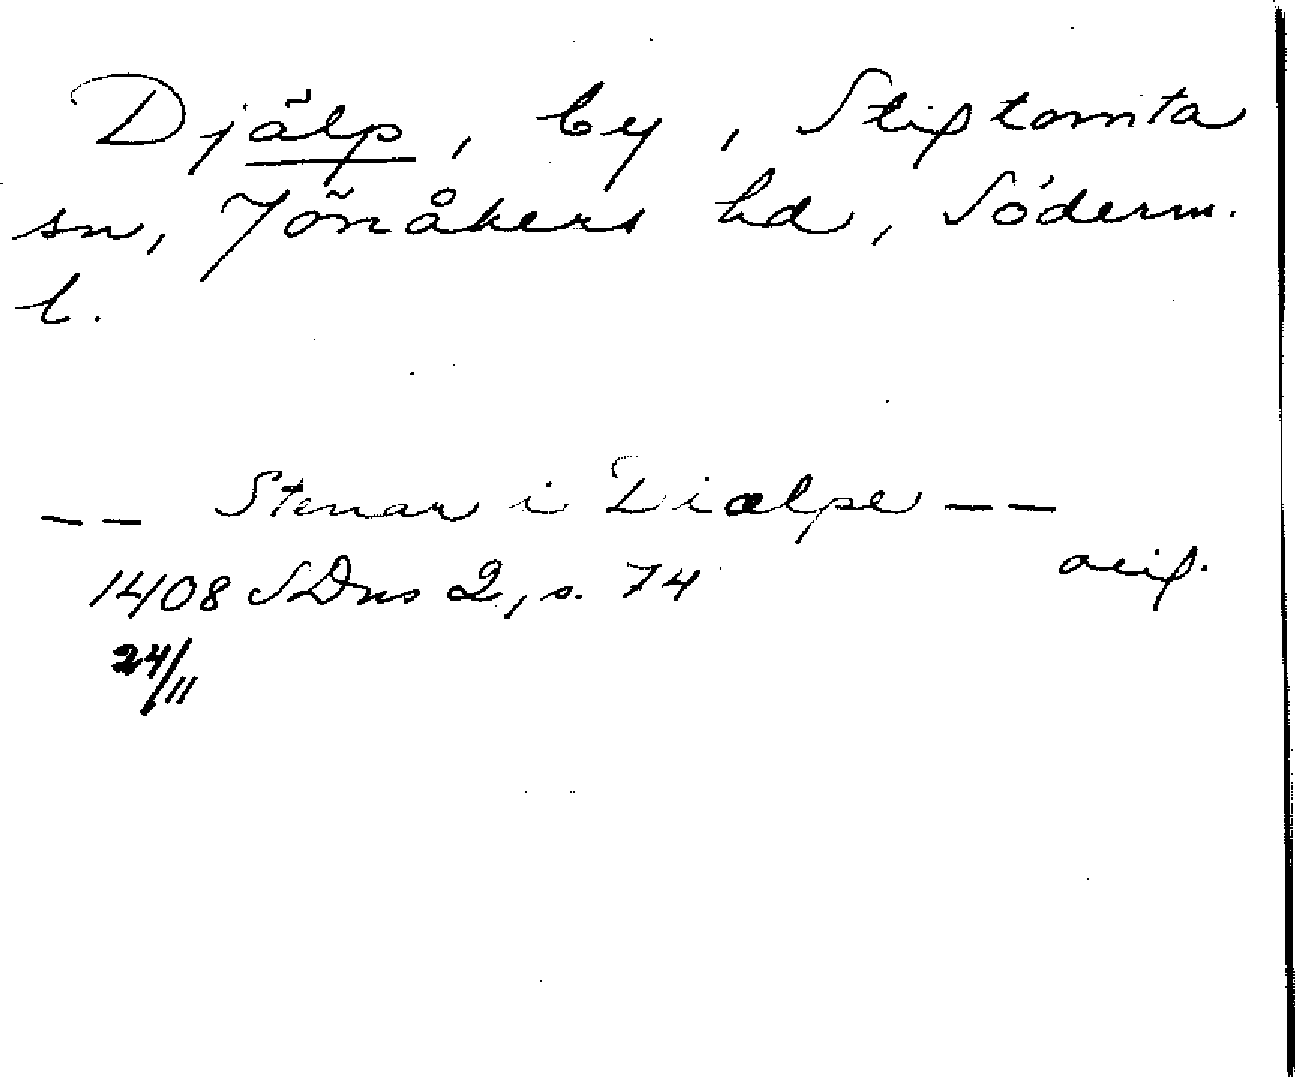 Djälp, by, Stigtomta
sn, Jönåkers hd, Söderm.
l.
-- Stenar i Diælpe --
avig.
1408 SDns 2, s. 74
24/11